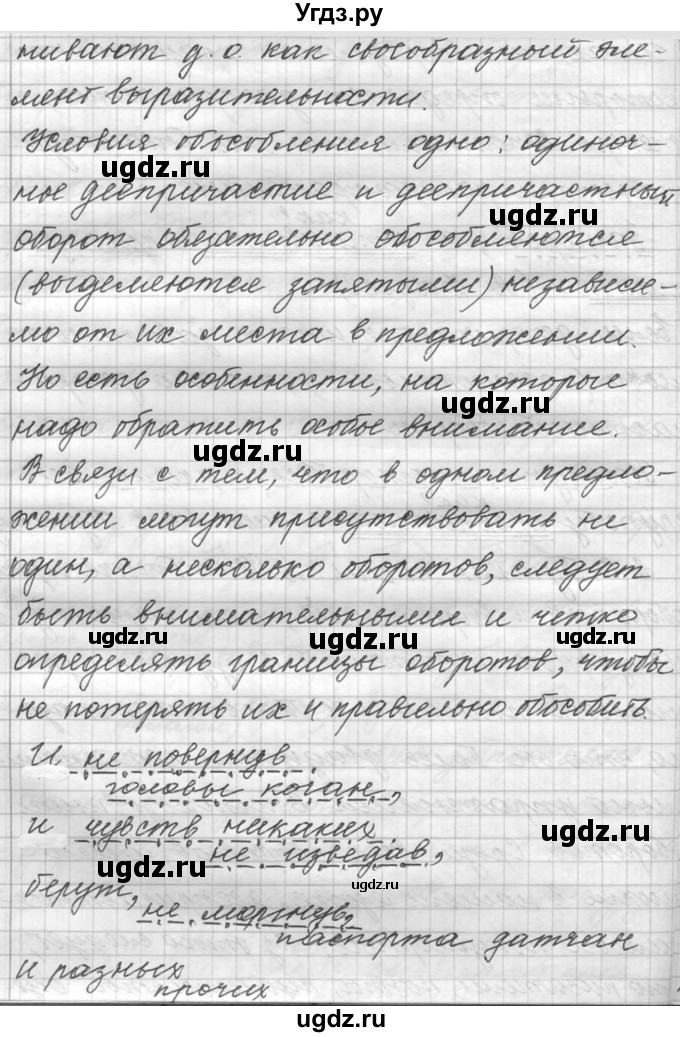 Угдз.ру
нивают д.о. как своеобразный эле-
мент выразительности.
Условия обособления одно: одиноч-
ugdz.ru ugdz.ru
ное деепричастие и деепричастный
ugdz.ru
оборот обязательно обособляются
(выделяются запятыми) независи-
мо от их места в предложении.
Но есть особенности, на которые
ugdz.ru
надо обратить особое внимание.
ugdz.ru
В связи с тем, что в одном предло-
жении могут присутствовать не
один, а несколько оборотов, следует
быть внимательными и четко
ugdz.ru ugdz.ru ugdz.ru
определять границы оборотов, чтобы
не потерять их и правильно обособить.
И не повернув
головы кочан,
и чувств никаких
ugdz.ru
не изведав,
ugdz.ru
берут,
ugdz.ru
не моргнув,
паспорта датчан
и разных
прочих
ugdz.ru